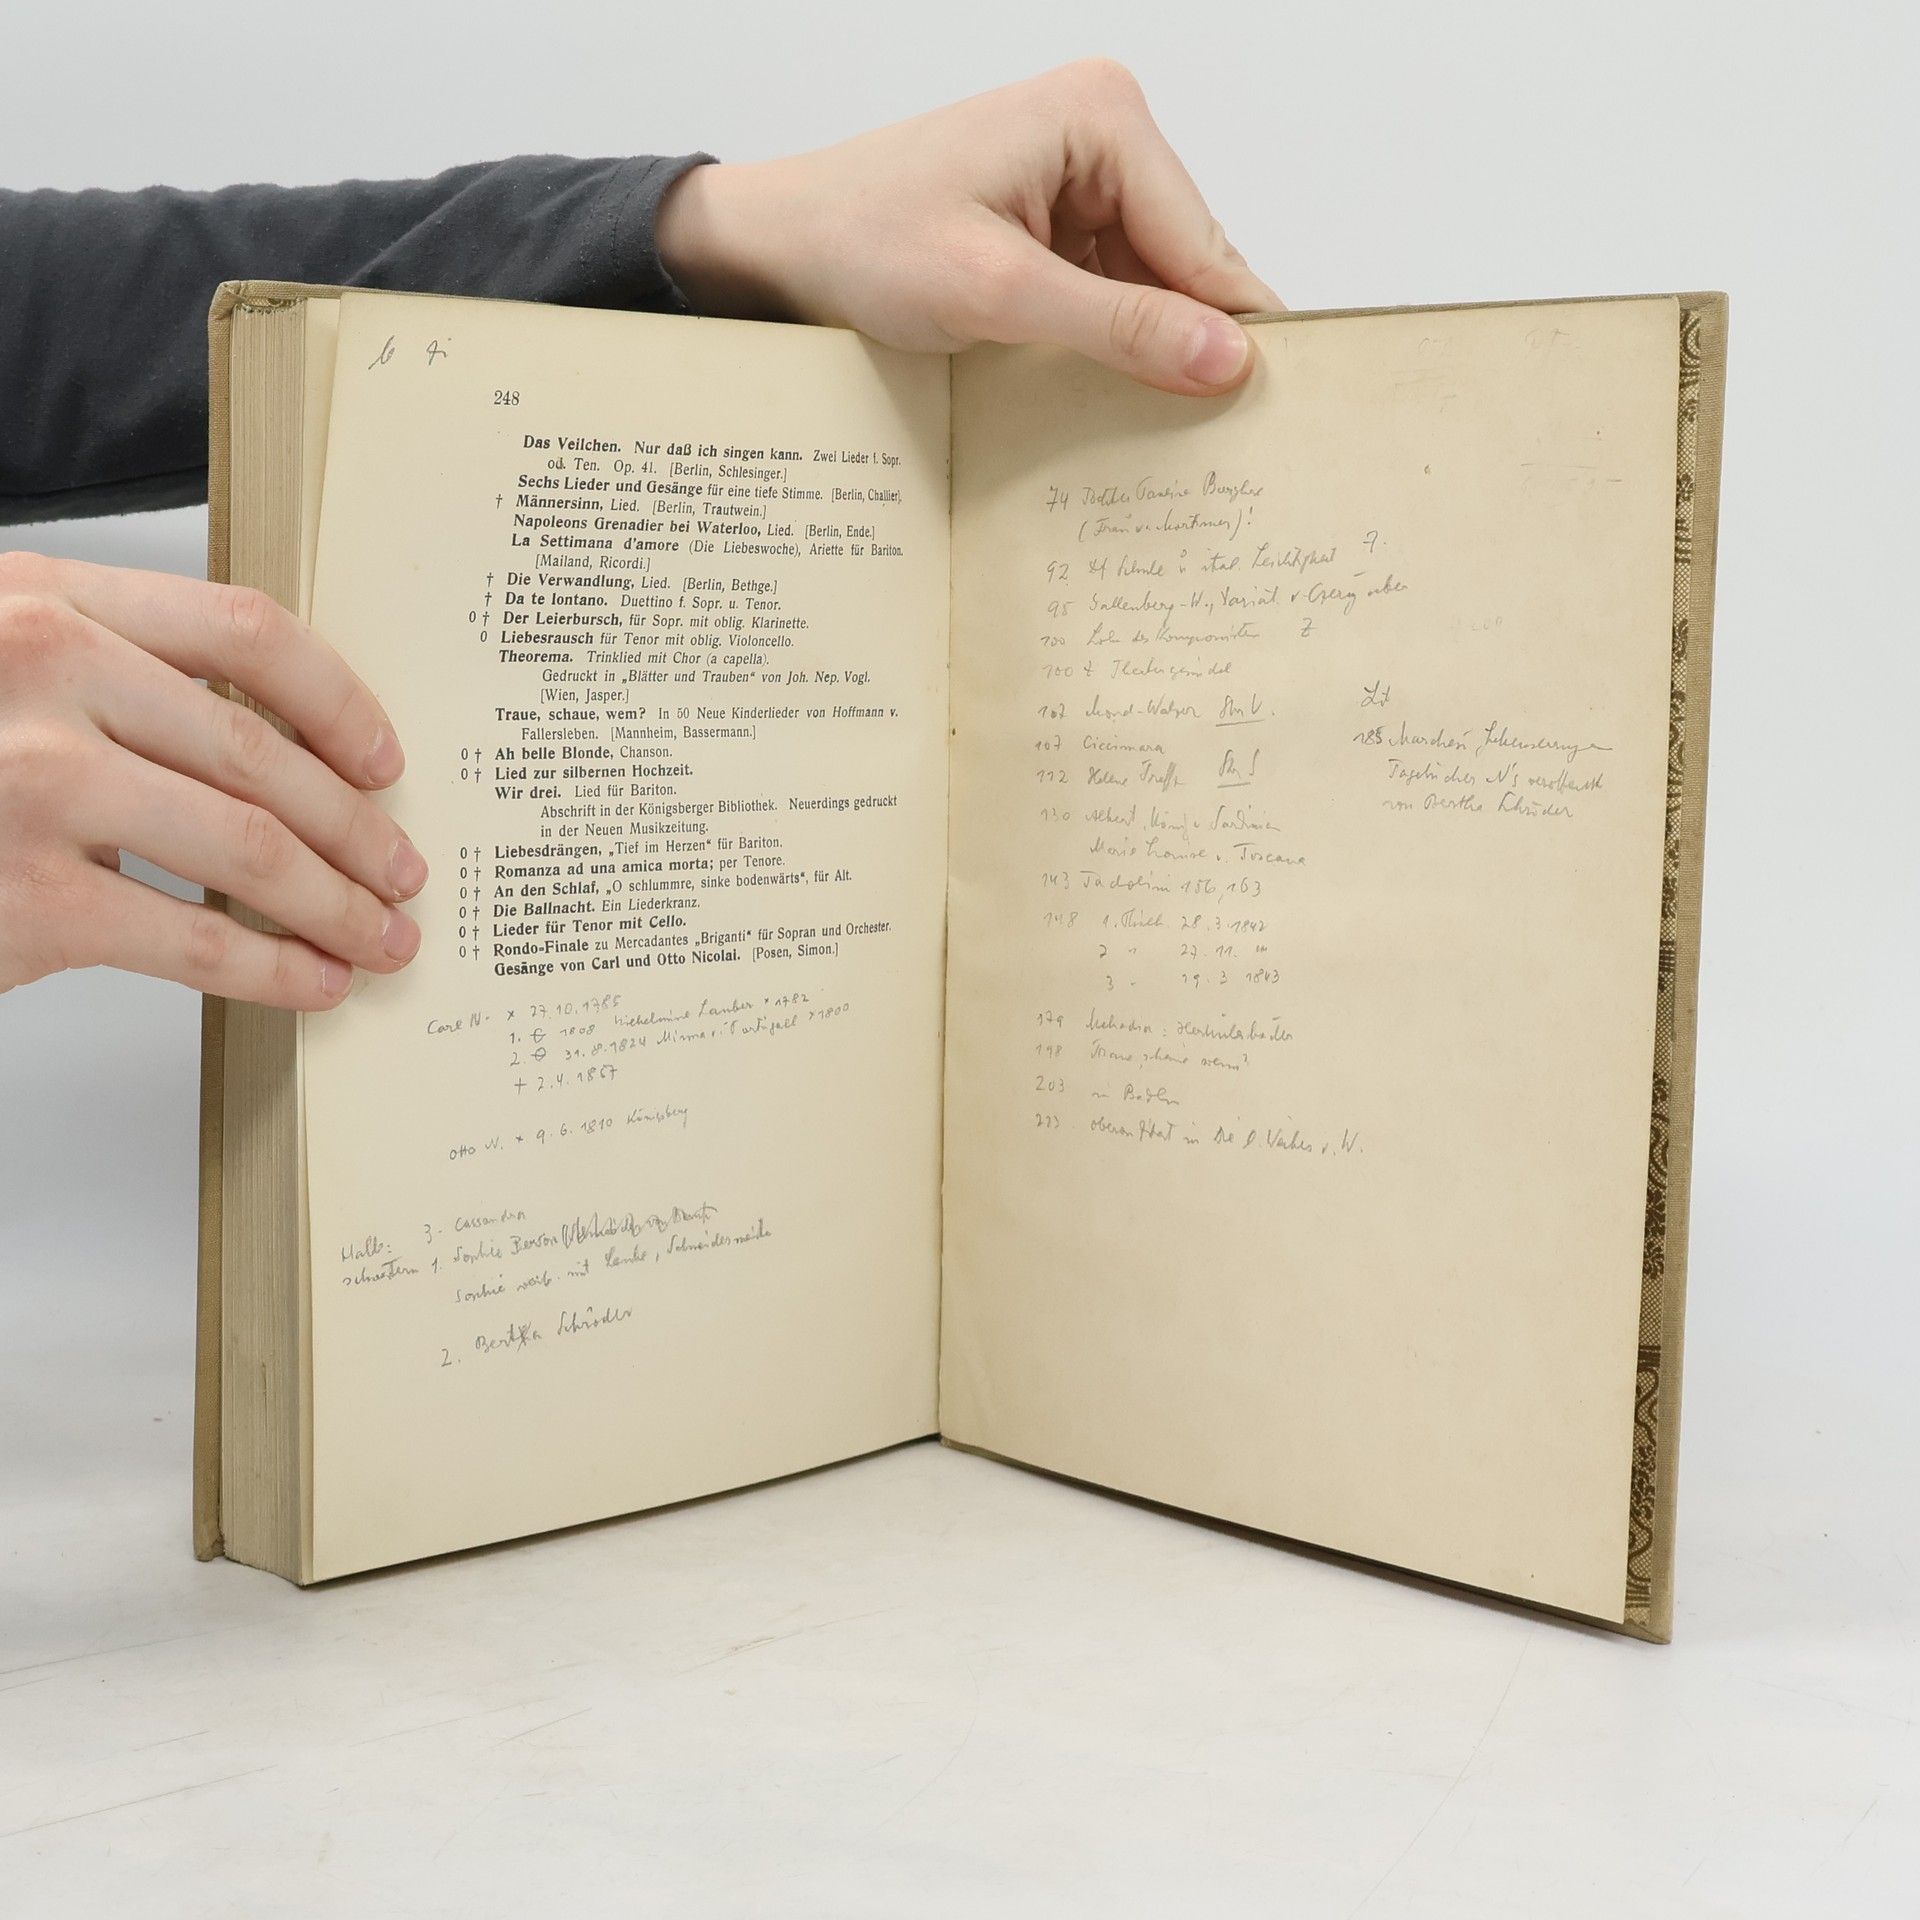 248
Das Veilchen. Nur daß ich singen kann. Zwei Lieder f. Sopr.
od. Ten. Op. 41. [Berlin, Schlesinger.]
Sechs Lieder und Gesänge für eine tiefe Stimme. [Berlin, Challier].
† Männersinn, Lied. [Berlin, Trautwein.]
Napoleons Grenadier bei Waterloo, Lied. [Berlin, Ende.]
La Settimana d'amore (Die Liebeswoche), Ariette für Bariton.
[Mailand, Ricordi.]
† Die Verwandlung, Lied. [Berlin, Bethge.]
† Da te lontano. Duettino f. Sopr. u. Tenor.
0 † Der Leierbursch, für Sopr. mit oblig. Klarinette.
0 Liebesrausch für Tenor mit oblig. Violoncello.
Theorema. Trinklied mit Chor (a capella).
Gedruckt in „Blätter und Trauben" von Joh. Nep. Vogl.
[Wien, Jasper.]
Traue, schaue, wem? In 50 Neue Kinderlieder von Hoffmann v.
Fallersleben. [Mannheim, Bassermann.]
0 † Ah belle Blonde, Chanson.
0 † Lied zur silbernen Hochzeit.
Wir drei. Lied für Bariton.
Abschrift in der Königsberger Bibliothek. Neuerdings gedruckt
in der Neuen Musikzeitung.
0 † Liebesdrängen, „Tief im Herzen" für Bariton.
0 † Romanza ad una amica morta; per Tenore.
0 † An den Schlaf, „O schlummre, sinke bodenwärts", für Alt.
0 † Die Ballnacht. Ein Liederkranz.
0 † Lieder für Tenor mit Cello.
0 † Rondo-Finale zu Mercadantes „Briganti" für Sopran und Orchester.
Gesänge von Carl und Otto Nicolai. [Posen, Simon.]
Carl N. × 27.10.1785
1. 1808 Wilhelmine Lauber × 1782
2. 31.8.1824 × 1800
† 2.4.1857
Otto N. × 9.6.1810 Königsberg
Halb: 3. Cassandra
schwestern 1. Sophie
Sophie mit
2. Bertha Schröder
74 Pauline
(Frau v.
92 Schule u ital. Leichtigkeit
95 Gallenberg-W., Variat. v. Czerny über
100 Lohn des Komponisten
100 Theatergesindel
107 Mond-Walzer
107 Ciccimara
112 Helene
130 Albert, König v Sardinien
Marie Louise v. Toscana
143 Tadolini 156, 163
148 1. Phich. 28.3.1842
2 " 27.11. "
3 " 19.3 1843
179 Mehadia: Herkulesbäder
198 Traue, schaue wem?
203 in
223 Oberon zitiert in Die l. Weiber v. W.
Lit
185 Marchesi Lebens
Tagebücher N's veröffentl.
von Bertha Schröder